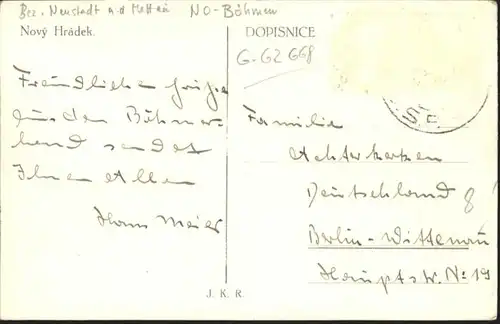 Bez. Neustadt a.d Mettau NO-Böhmen
Nový Hrádek.
DOPISNICE
G-GZ G68
Freundliche Grüße
aus dem Böhmer-
land sendet
Ihnen Allen
Hans Meier
Familie
Achterkerken
Deutschland
Berlin-Wittenau
Hauptstr. No 19
J. K. R.